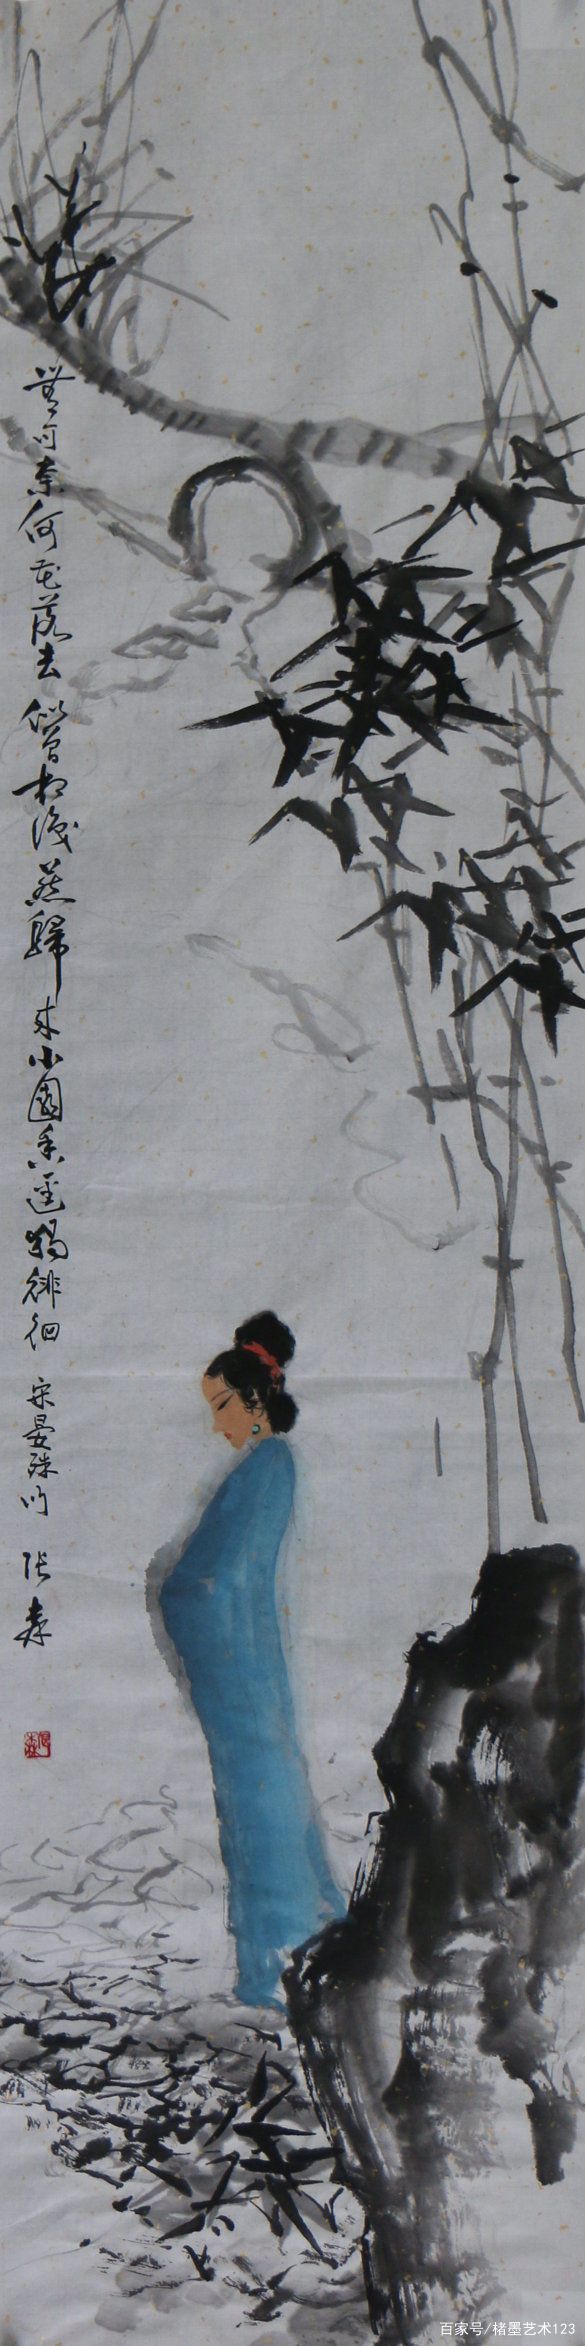 無可奈何花落去似曾相識燕歸來小園香徑獨徘徊 宋晏殊
百家号/楮墨艺术123